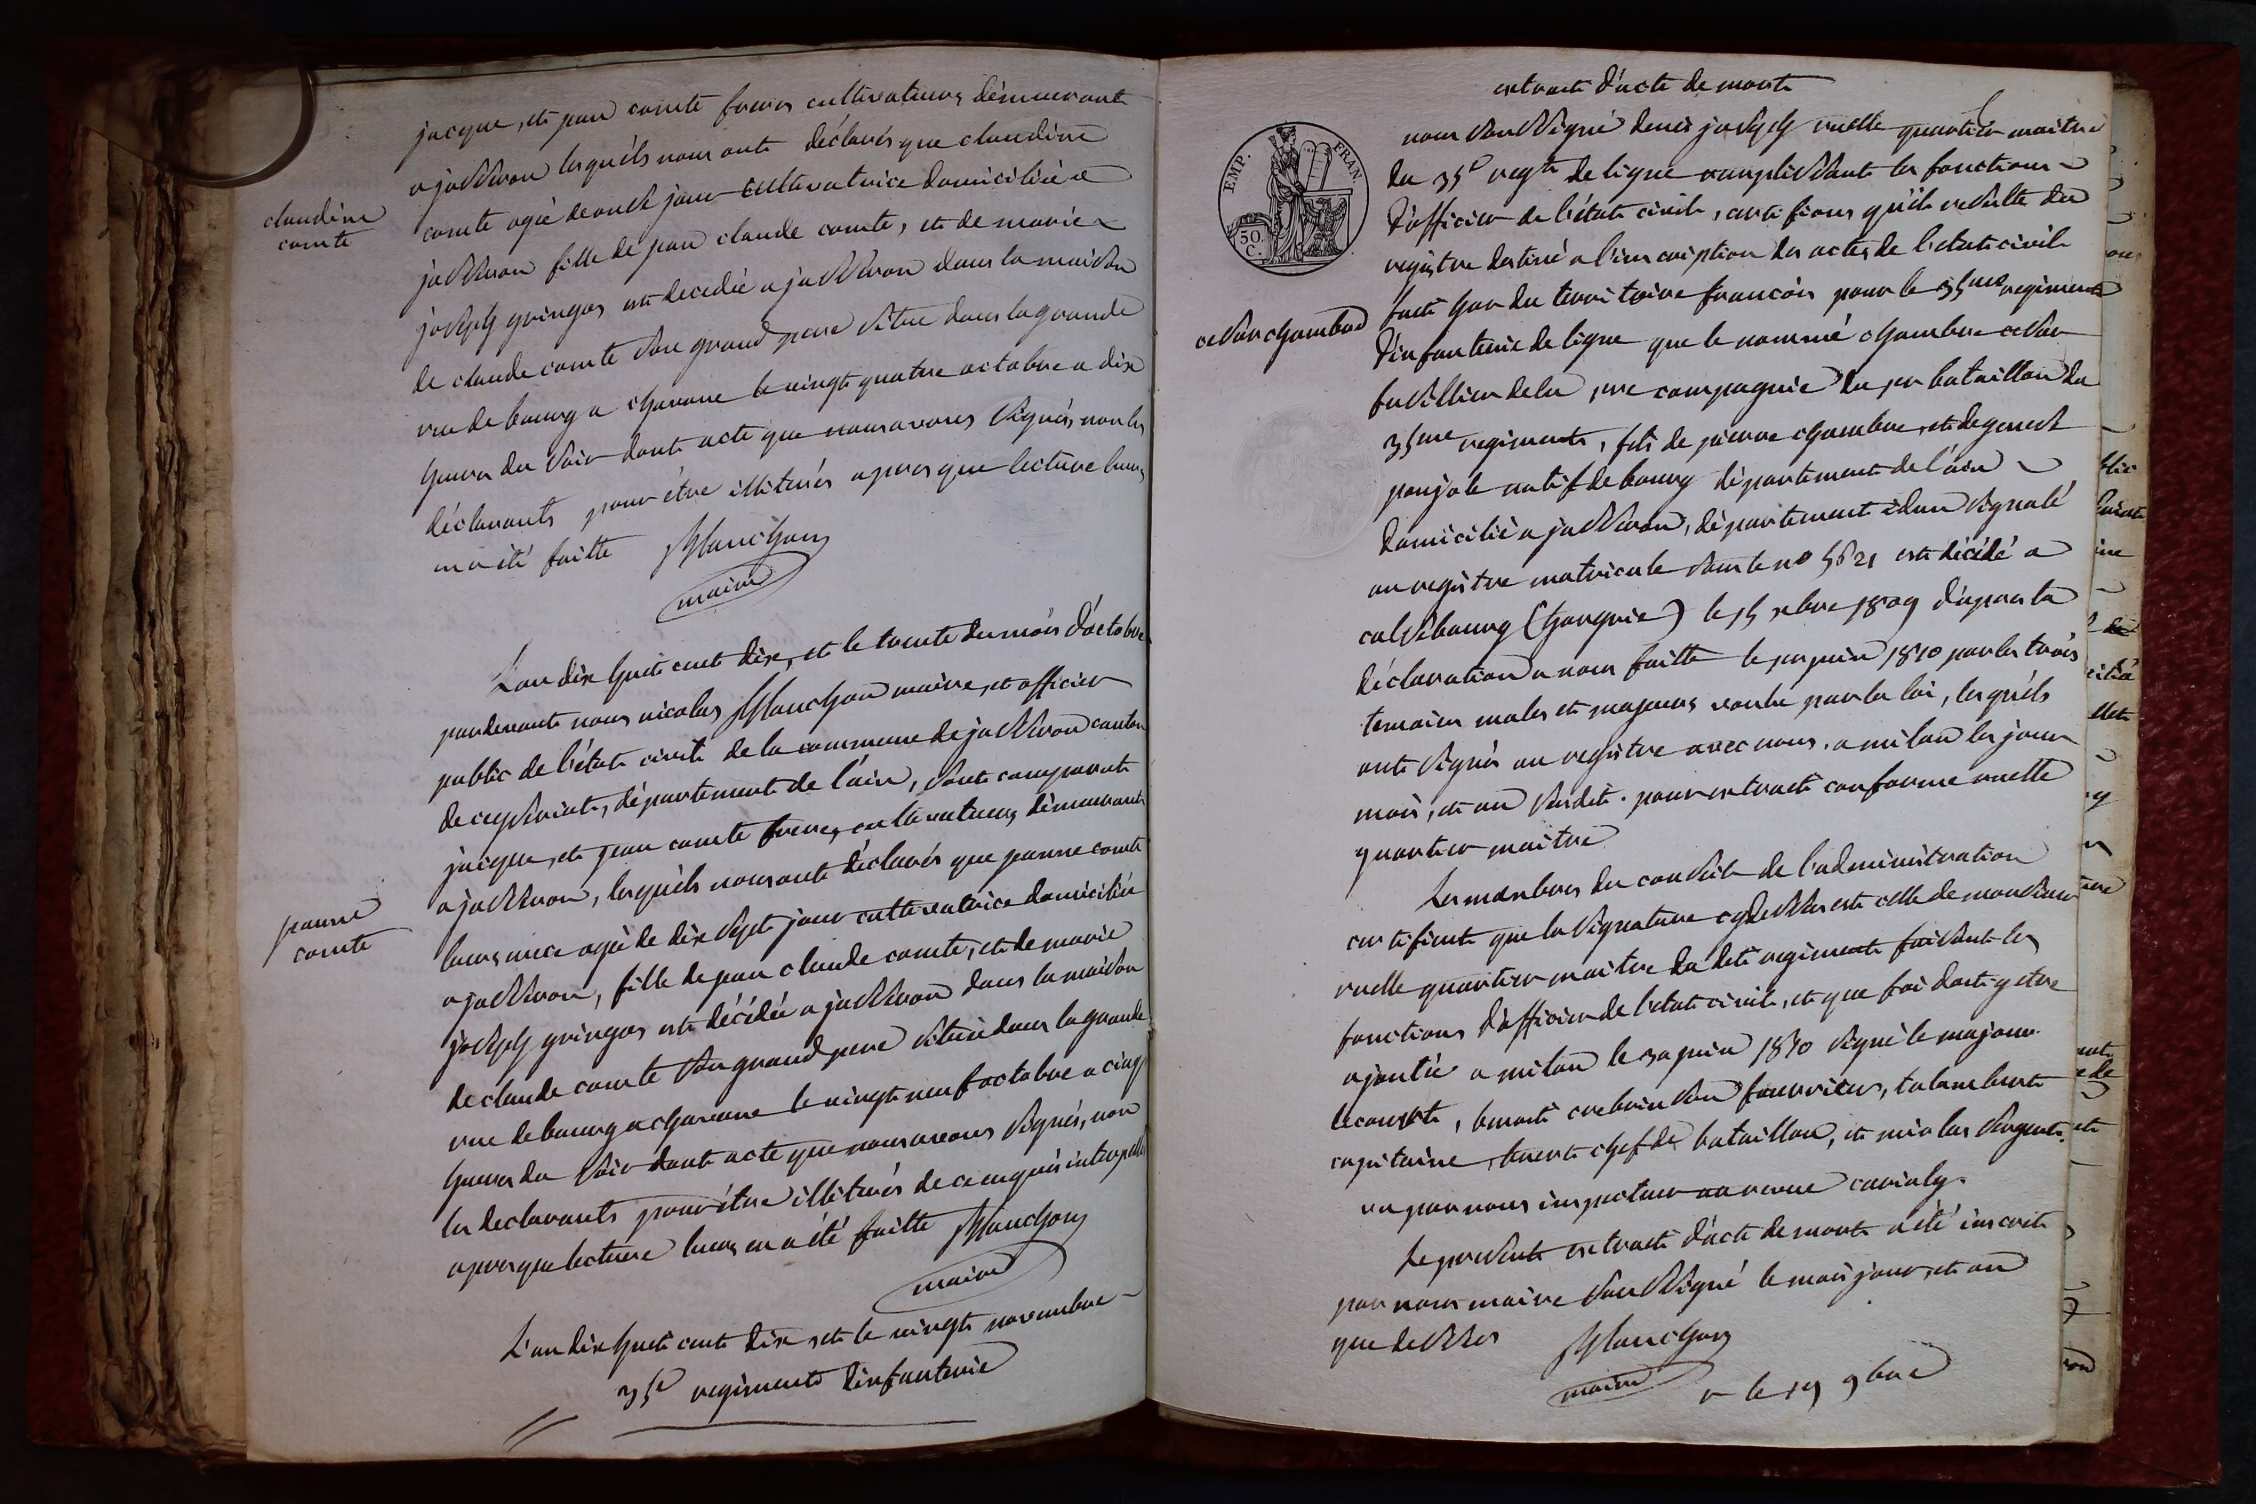 jacque, et jean comte freres cultivateurs démeurants
a jasseron lesquéls nous ont déclarés que claudine
claudine
comte
comte agée de onse jour cultivatrice domiciliée a
jasseron fille de jean claude comte, et de marie
joseph gringos est decedée a jasseron dans la maison
de claude comte son grand pere située dans la grande
rue de bourg a chavane le vingt quatre octobre a dix
heures du soir dont acte que nous avons signés, non les
déclarants pour être illiterés apres que lecture leurs
en a été faitte Blanchon
maire
L'an dix huit cent dix, et le trente du mois d'octobre
pardevant nous nicolas Blanchon maire, et officier
public de l'état civil de la commune de jasseron canton
de ceyseriat, département de l'ain, sont comparut
jacque, et jean comte freres, cultivateurs, démeurants
a jasseron, lesquéls nous ont déclarés que jeanne comte
jeanne
comte
leurs niece agée de dix sept jour cultivatrice domiciliée
a jasseron, fille de jean claude comte, et de marie
joseph gringos est décédée a jasseron dans la maison
de claude comte son grand pere située dans la grande
rue de bourg a chavane le vingt neuf octobre a cinq
heures du soir dont acte que nous avons signés, non
les declarants pour être illiterés de ce enquis interpellés
apres que lecture leurs en a été faitte Blanchon
maire
L'an dix huit cent dix et le vingt novembre
35e regiment d'infanterie
extrait d'acte de mort
EMP. FRAN
50 C.
nous soussigné denis joseph ruelle quartier maitre
du 35e regt de ligne remplissant les fonctions
d'officier de l'état civil, certifions qu'il resulte du
registre destiné a l'inscription des actes de l'etat civil
fait hors du territoire francois pour le 35me regiment
cesar chambre
d'infanterie de ligne que le nommé chambre cesar
fusillier de la 1re compagnie du 1er bataillon du
35me regiment, fils de pierre chambre, et de genest
poujole natif de bourg département de l'ain
domicilié a jasseron, département idem signalé
au registre matricule sous le no 5621 est décédé a
calsbourg (hongrie) le 15 xbre 1809 d'apres la
déclaration a nous faitte le 1er juin 1810 par les trois
temoins males et majeurs voulu par la loi, lesquéls
ont signés au registre avec nous. a milan les jour
mois, et an susdit. pour extrait conforme ruelle
quartier maitre
Les membres du conseil de l'administration
certifient que la signature cy dessus est celle de monsieur
ruelle quartier maitre du dit regiment faisant les
fonctions d'officier de l'état civil, et que foi doit y etre
ajoutée a milan le 30 juin 1810 signé le majour
capitaine, chef de bataillon, et nicolas sergent.
vu par nous inspecteur au revue
Le present extrait d'acte de mort a été inscrit
par nous maire soussigné le mois jour, et an
que dessus Blanchon
maire
le 19 9bre